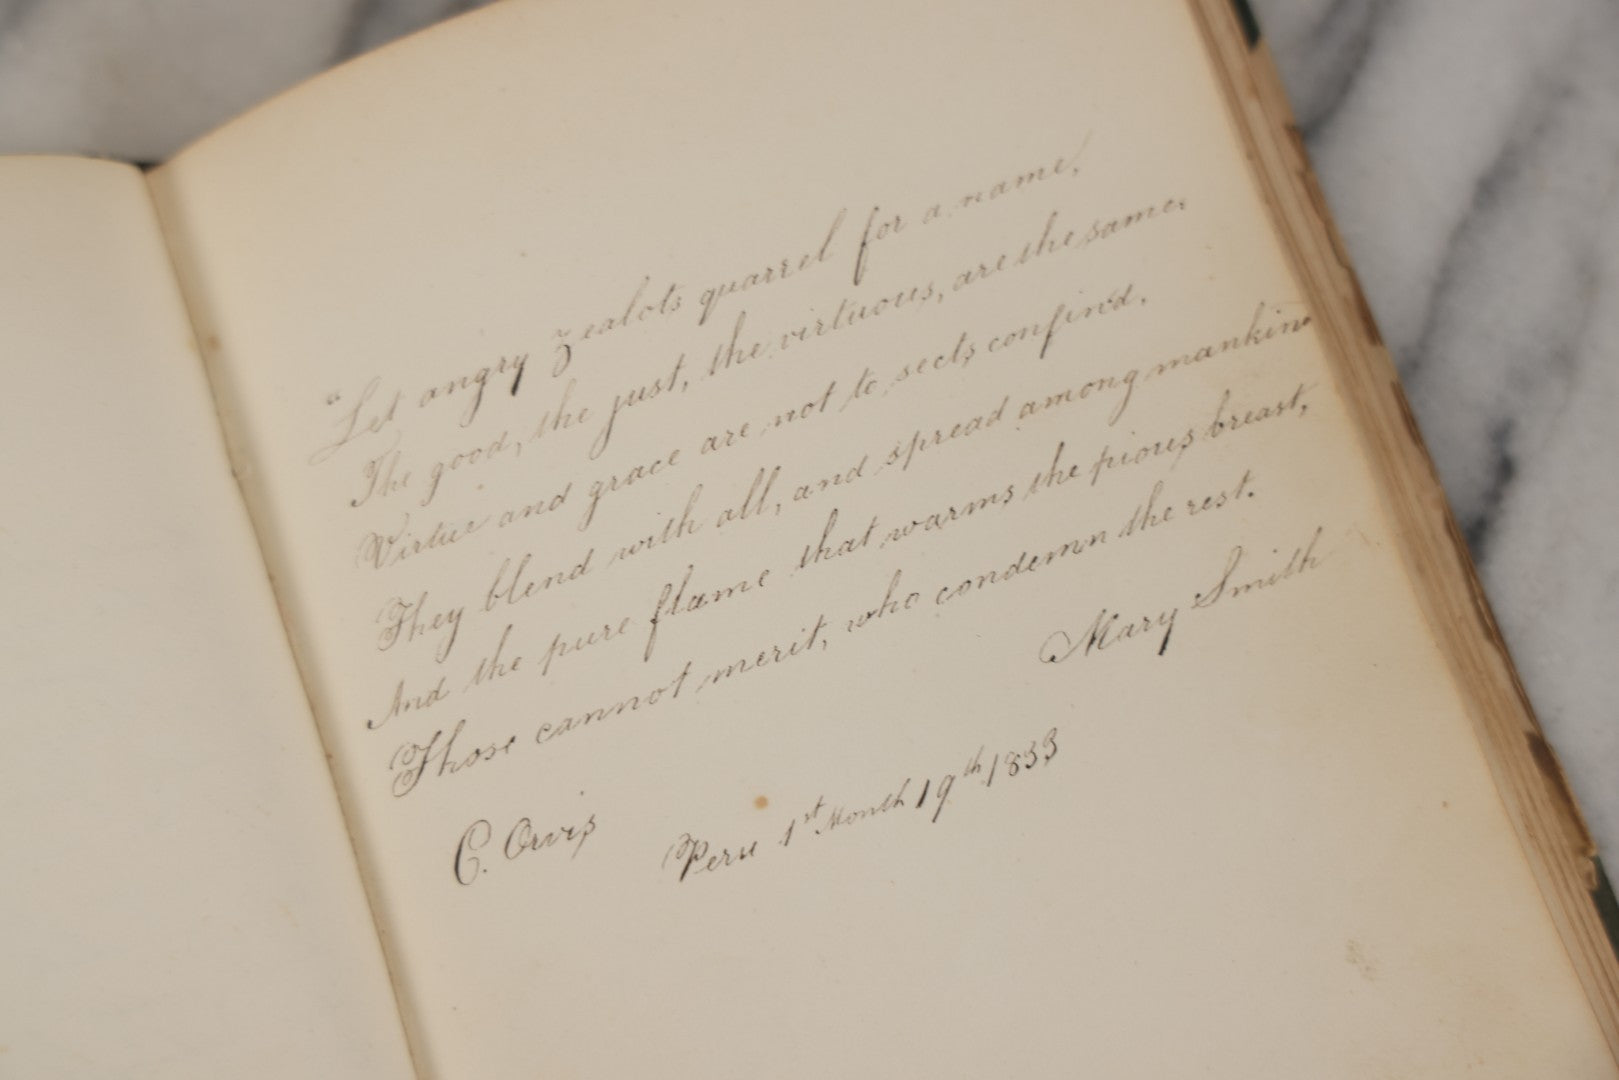 "Let angry zealots quarrel for a name,
The good, the just, the virtuous, are the same.
Virtue and grace are not to sects confin'd,
They blend with all, and spread among mankin
And the pure flame that warms the pious breast,
Those cannot merit, who condemn the rest.
Mary Smith
C. Orvis
Peru 1st Month 19th 1833